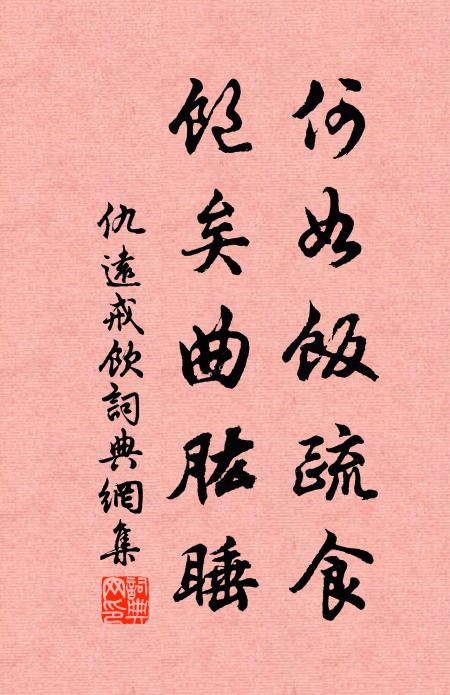 何如飯疏食
飽矣曲肱睡
仇遠戒飲詞典網集
詞典网印